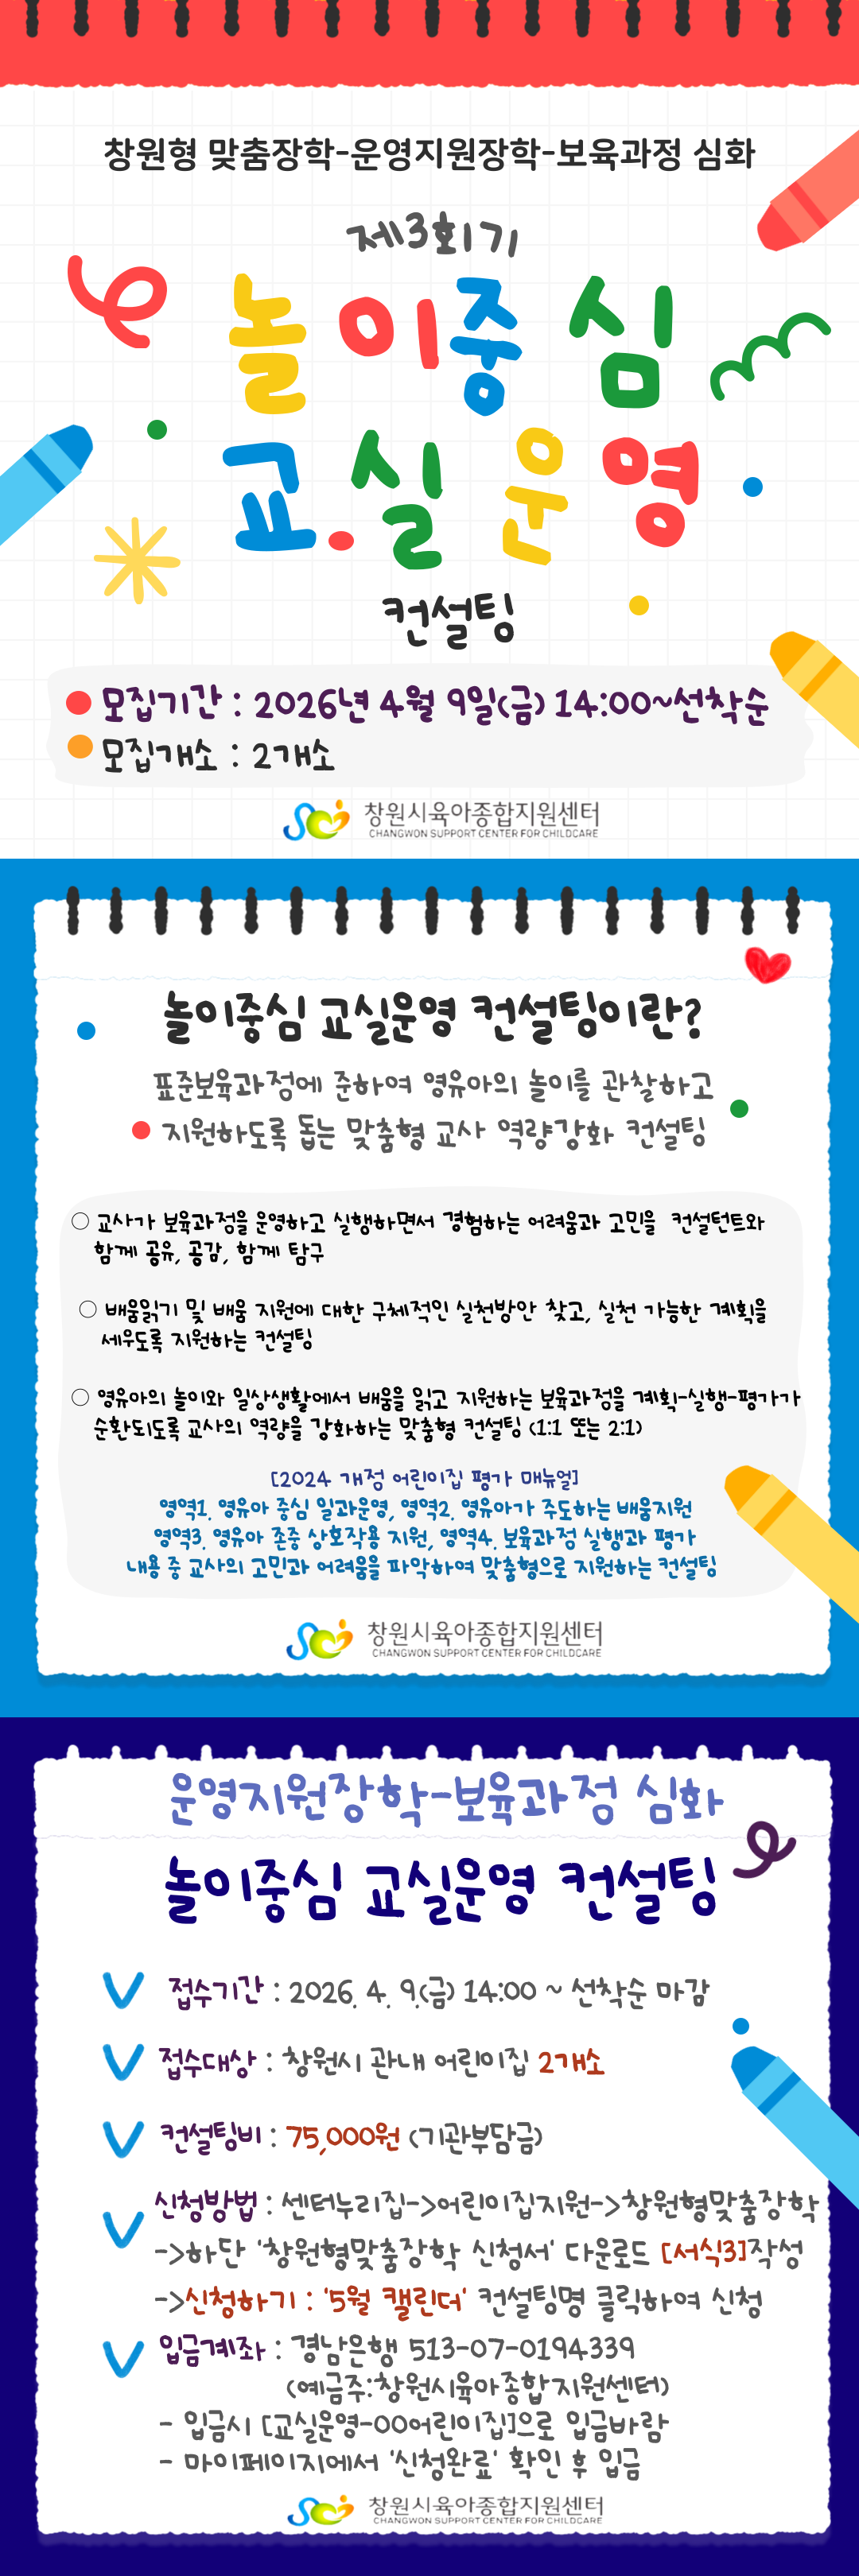 창원형 맞춤장학-운영지원장학-보육과정 심화
제3회기
놀이중심
교실운영
컨설팅
모집기간 : 2026년 4월 9일(금) 14:00~선착순
모집개소 : 2개소
창원시육아종합지원센터
CHANGWON SUPPORT CENTER FOR CHILDCARE
놀이중심 교실운영 컨설팅이란?
표준보육과정에 준하여 영유아의 놀이를 관찰하고
지원하도록 돕는 맞춤형 교사 역량강화 컨설팅
○ 교사가 보육과정을 운영하고 실행하면서 경험하는 어려움과 고민을 컨설턴트와
함께 공유, 공감, 함께 탐구
○ 배움읽기 및 배움 지원에 대한 구체적인 실천방안 찾고, 실천 가능한 계획을
세우도록 지원하는 컨설팅
○ 영유아의 놀이와 일상생활에서 배움을 읽고 지원하는 보육과정을 계획-실행-평가가
순환되도록 교사의 역량을 강화하는 맞춤형 컨설팅 (1:1 또는 2:1)
[2024 개정 어린이집 평가 매뉴얼]
영역1. 영유아 중심 일과운영, 영역2. 영유아가 주도하는 배움지원
영역3. 영유아 존중 상호작용 지원, 영역4. 보육과정 실행과 평가
내용 중 교사의 고민과 어려움을 파악하여 맞춤형으로 지원하는 컨설팅
창원시육아종합지원센터
CHANGWON SUPPORT CENTER FOR CHILDCARE
운영지원장학-보육과정 심화
놀이중심 교실운영 컨설팅
접수기간 : 2026. 4. 9.(금) 14:00 ~ 선착순 마감
접수대상 : 창원시 관내 어린이집 2개소
컨설팅비 : 75,000원 (기관부담금)
신청방법 : 센터누리집->어린이집지원->창원형맞춤장학
->하단 '창원형맞춤장학 신청서' 다운로드 [서식3]작성
->신청하기 : '5월 캘린더' 컨설팅명 클릭하여 신청
입금계좌 : 경남은행 513-07-0194339
(예금주:창원시육아종합지원센터)
- 입금시 [교실운영-00어린이집]으로 입금바람
- 마이페이지에서 '신청완료' 확인 후 입금
창원시육아종합지원센터
CHANGWON SUPPORT CENTER FOR CHILDCARE